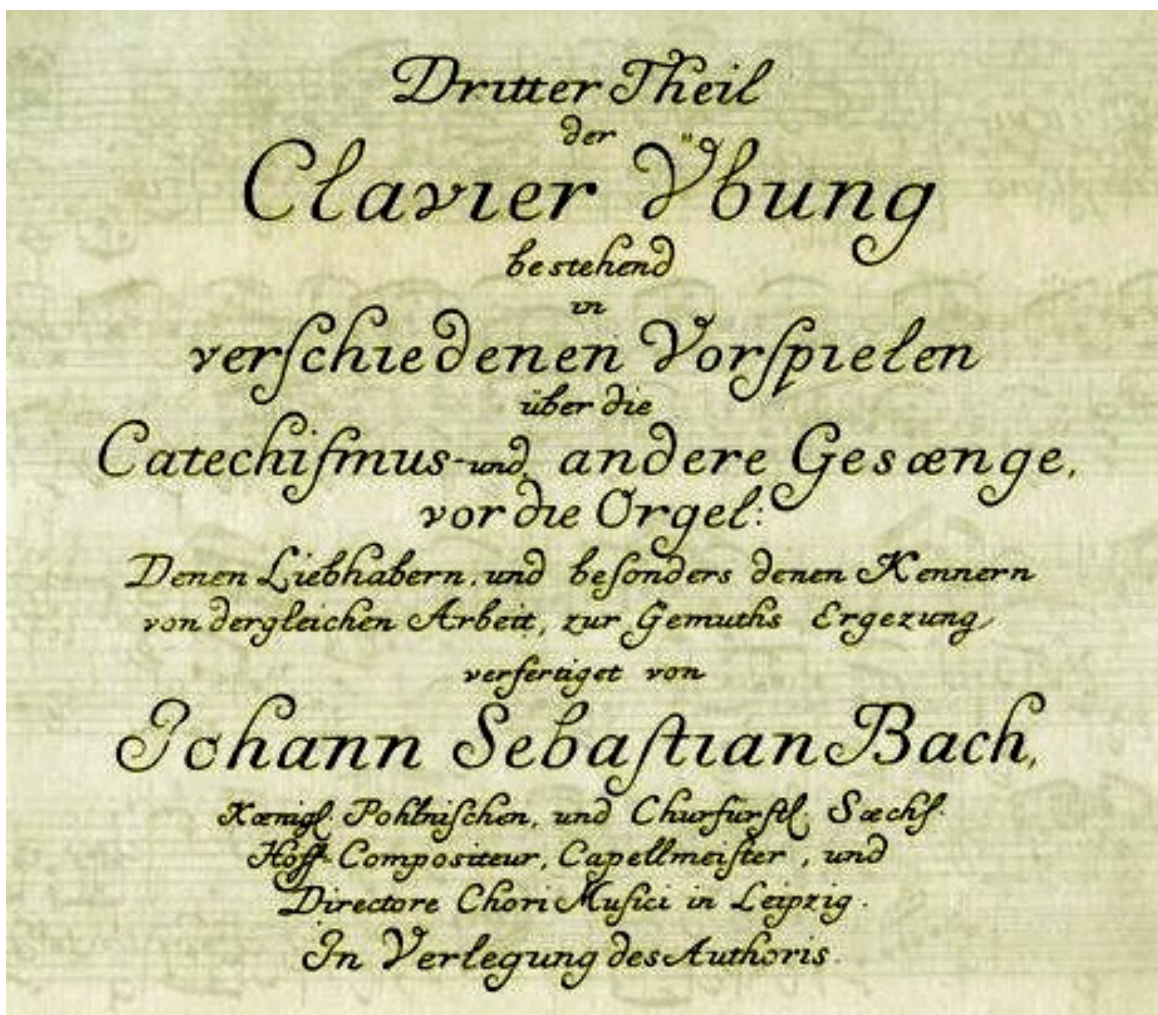 Dritter Theil
der
Clavier Ÿbung
bestehend
in
verſchiedenen Vorſpielen
über die
Catechiſmus-und andere Gesænge,
vor die Orgel:
Denen Liebhabern, und beſonders denen Kennern
von dergleichen Arbeit, zur Gemuths Ergezung
verfertiget von
Johann Sebaſtian Bach,
Kœnigl. Pohlniſchen, und Churfürſtl. Sæchſ.
Hoff-Compositeur, Capellmeiſter, und
Directore Chori Muſici in Leipzig.
In Verlegung des Authoris.